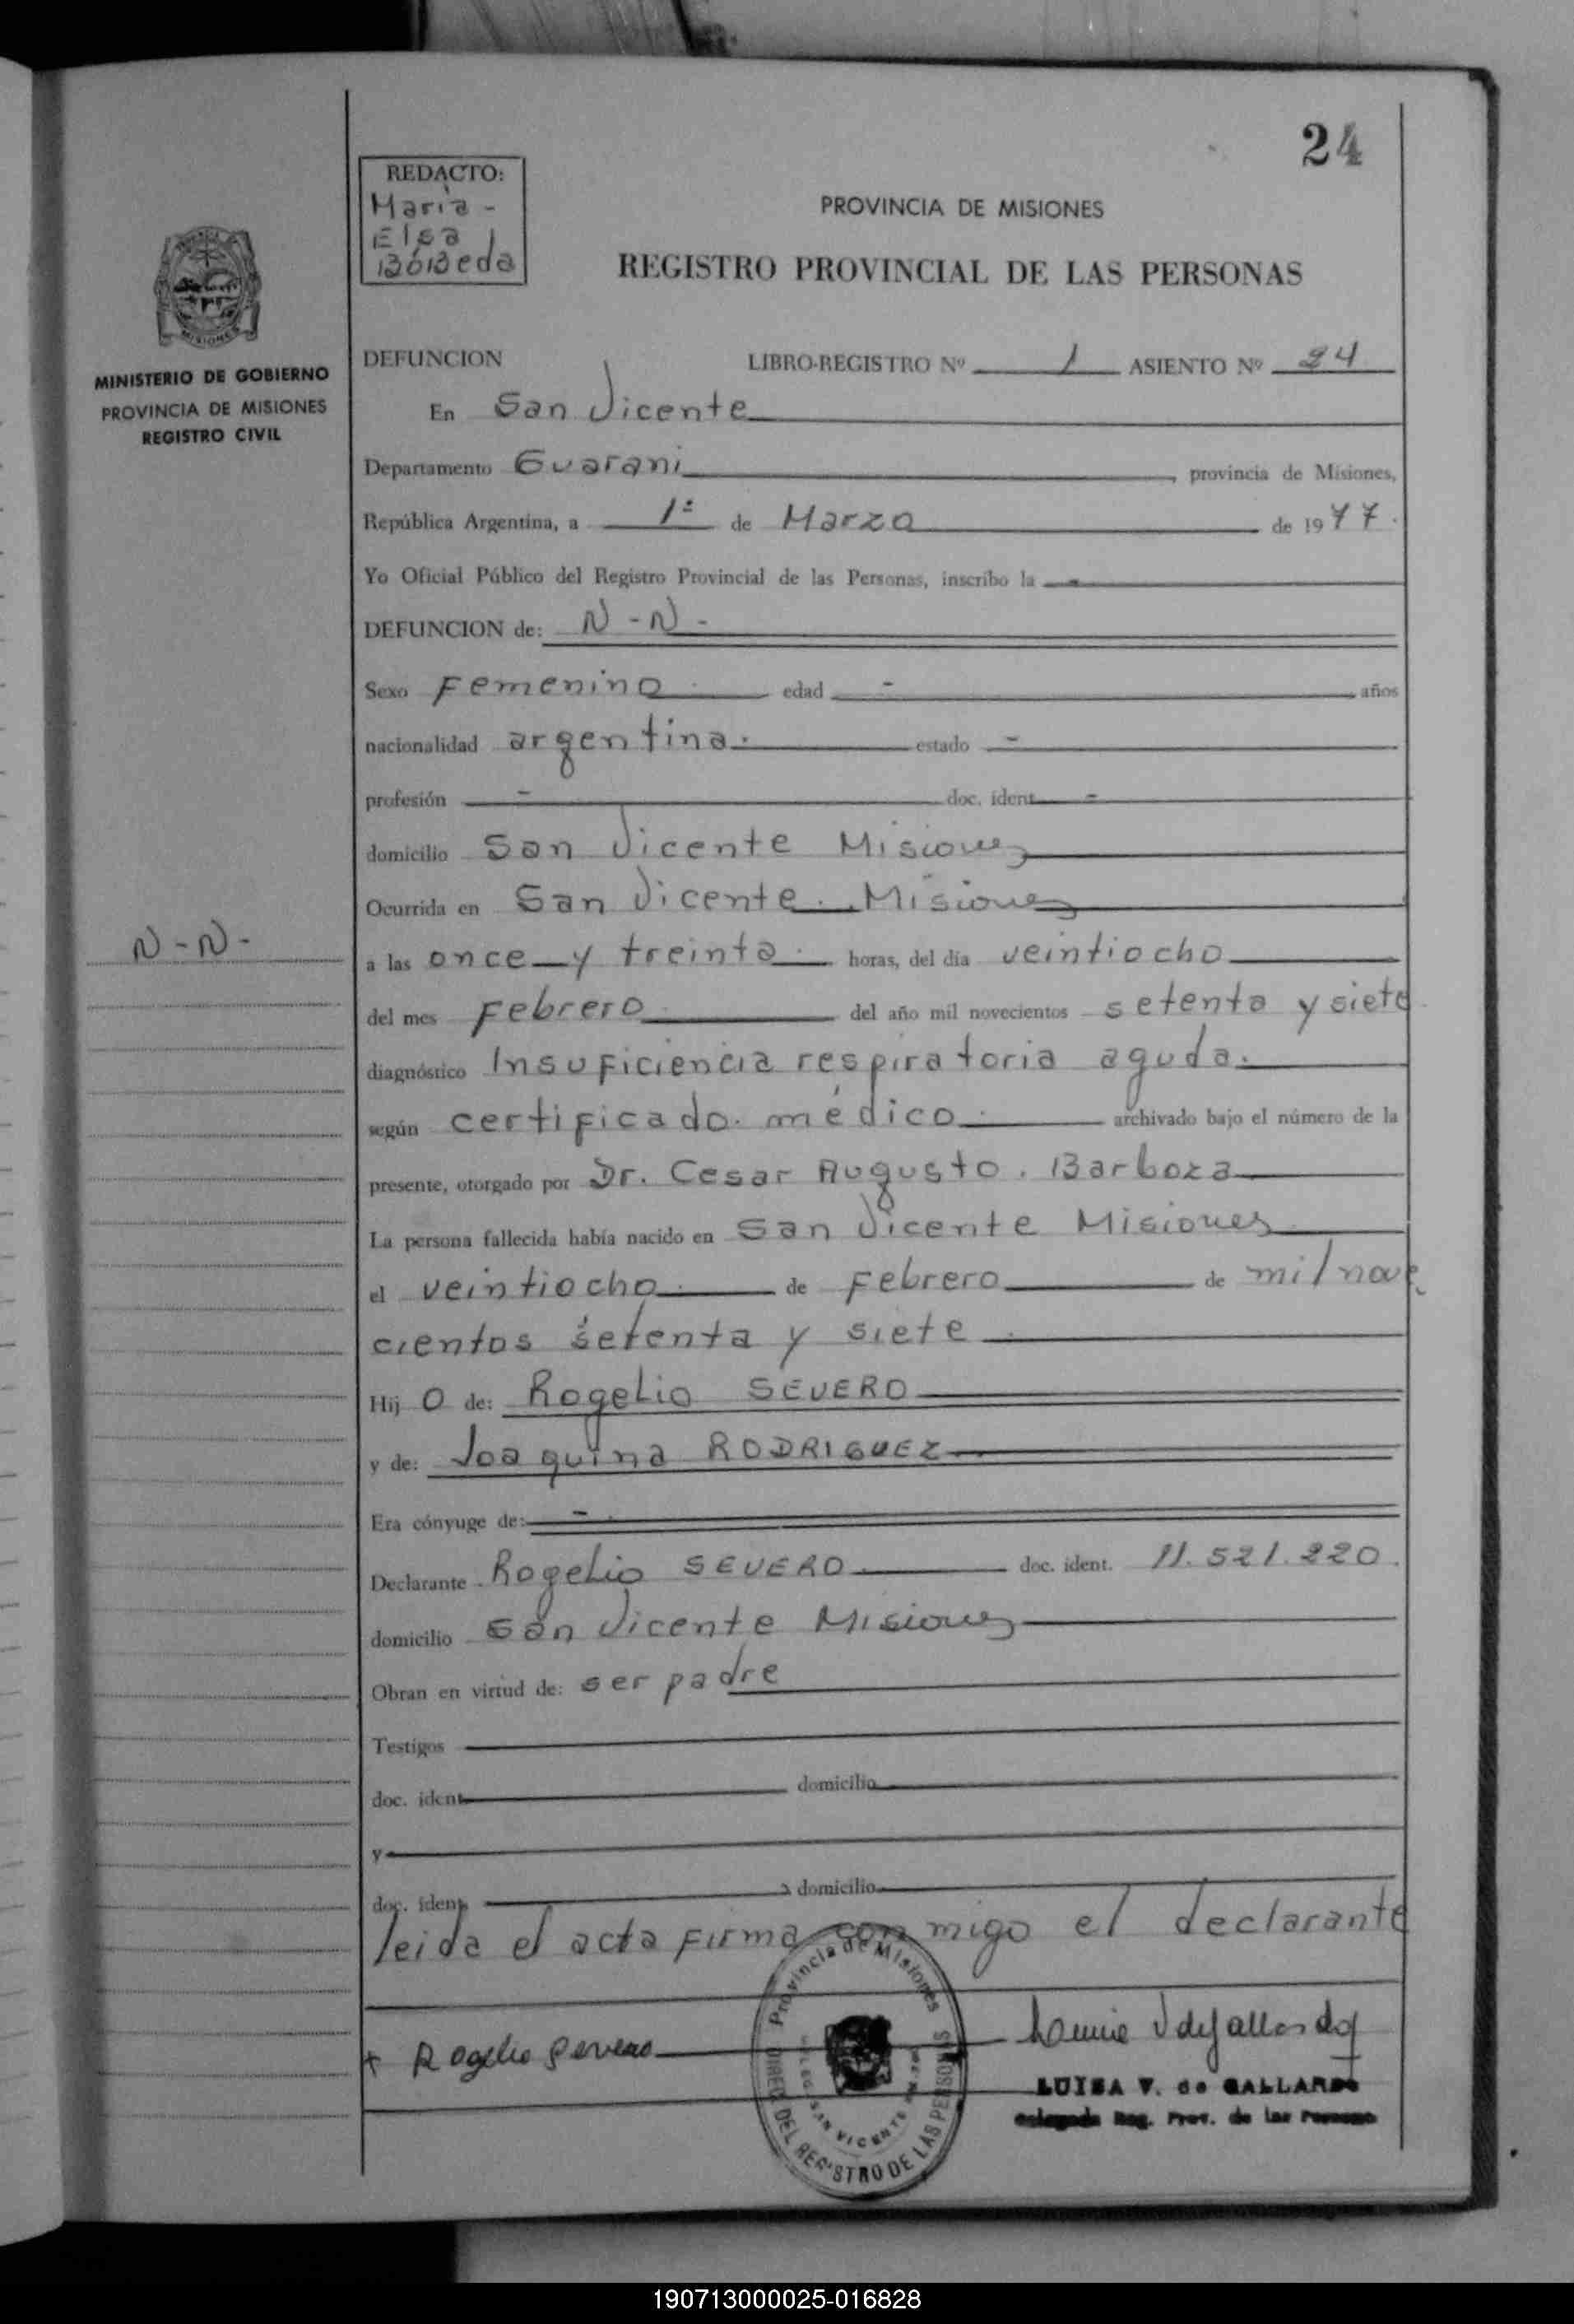 24
REDACTO:
Maria -
Elsa
BóBeda
PROVINCIA DE MISIONES
REGISTRO PROVINCIAL DE LAS PERSONAS
MISIONES
MINISTERIO DE GOBIERNO
PROVINCIA DE MISIONES
REGISTRO CIVIL
DEFUNCION LIBRO-REGISTRO Nº 1 ASIENTO Nº 24
En San Vicente
Departamento Guarani, provincia de Misiones,
República Argentina, a 1º de Marzo de 1977.
Yo Oficial Público del Registro Provincial de las Personas, inscribo la -
DEFUNCION de: N - N -
Sexo Femenino. edad - años
nacionalidad argentina. estado -
profesión - doc. ident. -
domicilio San Vicente Misiones
Ocurrida en San Vicente. Misiones
N - N -
a las once y treinta. horas, del día veintiocho
del mes Febrero del año mil novecientos setenta y siete
diagnóstico Insuficiencia respiratoria aguda.
según certificado. médico. archivado bajo el número de la
presente, otorgado por Dr. Cesar Augusto. Barboza
La persona fallecida había nacido en San Vicente Misiones
el veintiocho. de Febrero de mil nove
cientos setenta y siete.
Hij o de: Rogelio SEVERO
y de: Joaquina RODRIGUEZ
Era cónyuge de: -.
Declarante Rogelio SEVERO doc. ident. 11.521.220.
domicilio San Vicente Misiones
Obran en virtud de: ser padre
Testigos
doc. ident. domicilio
y
doc. ident. domicilio
leida el acta firma con migo el declarante
Provincia de Misiones
DIREC. DEL REGISTRO DE LAS PERSONAS
SAN VICENTE
+ Rogelio Severo
LUISA V. de GALLARDO
Delegada Reg. Prov. de las Personas
190713000025-016828